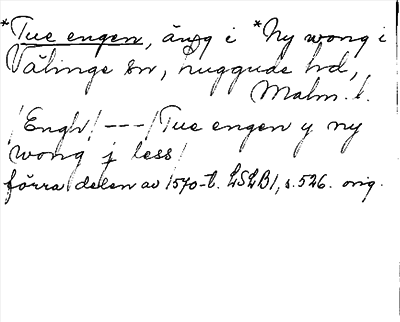 *Tue engen, äng i *Ny wong i
Välinge sn, Luggude hd,
Malm. l.
/Engh/ --- /Tue engen y ny
wong j less/
förra delen av 1570-t. LSLB1, s. 526. orig.